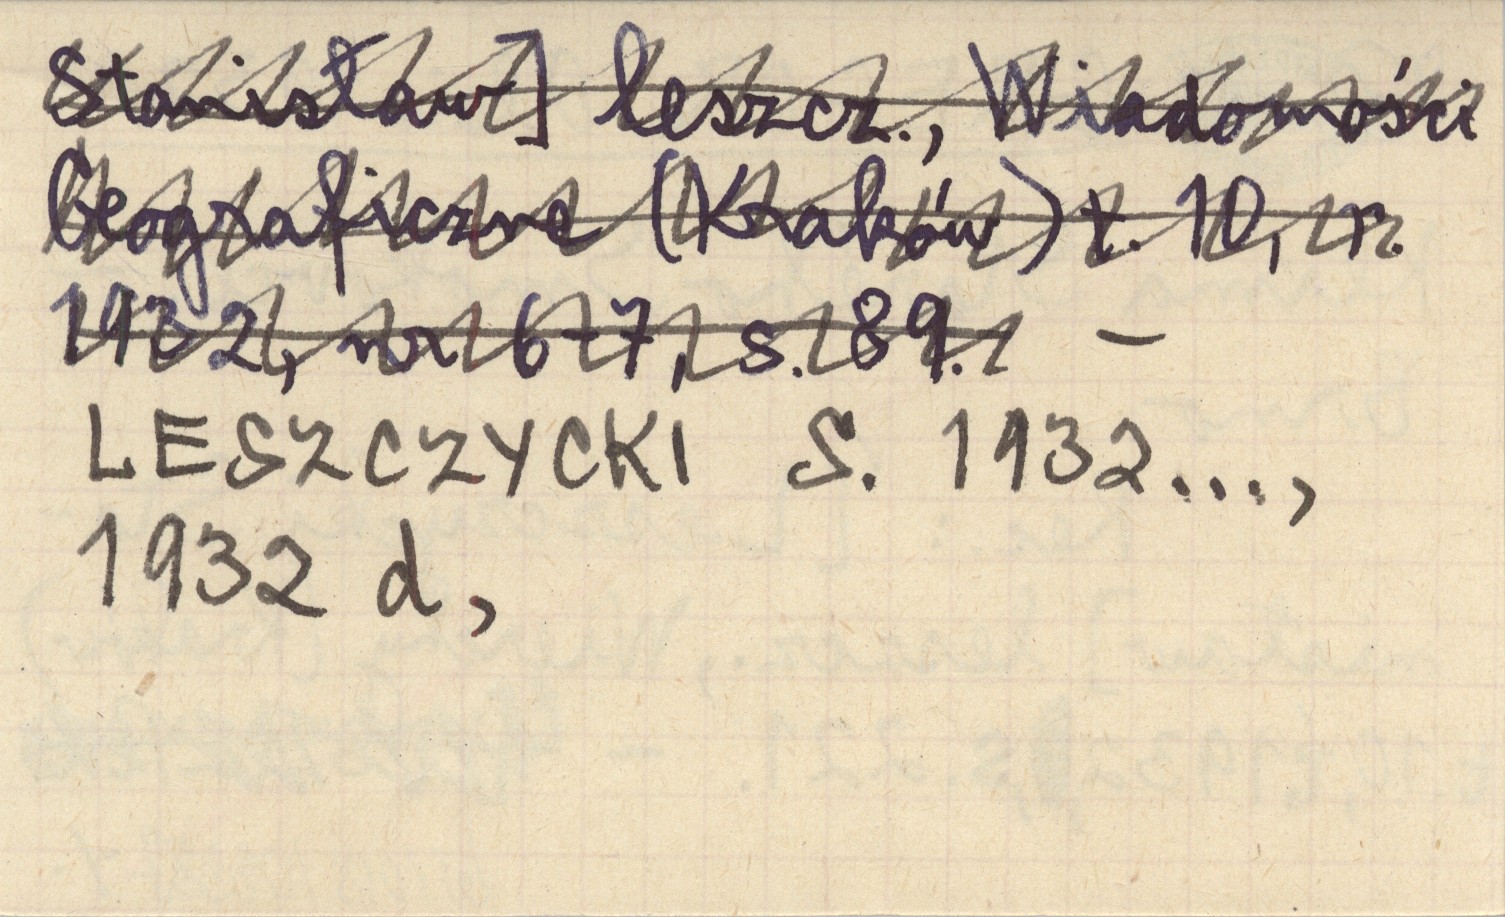 Stanisław] Leszcz., Wiadomości
Geograficzne (Kraków) t. 10, r.
1932, nr 6-7, s. 89. –
LESZCZYCKI S. 1932...,
1932 d,